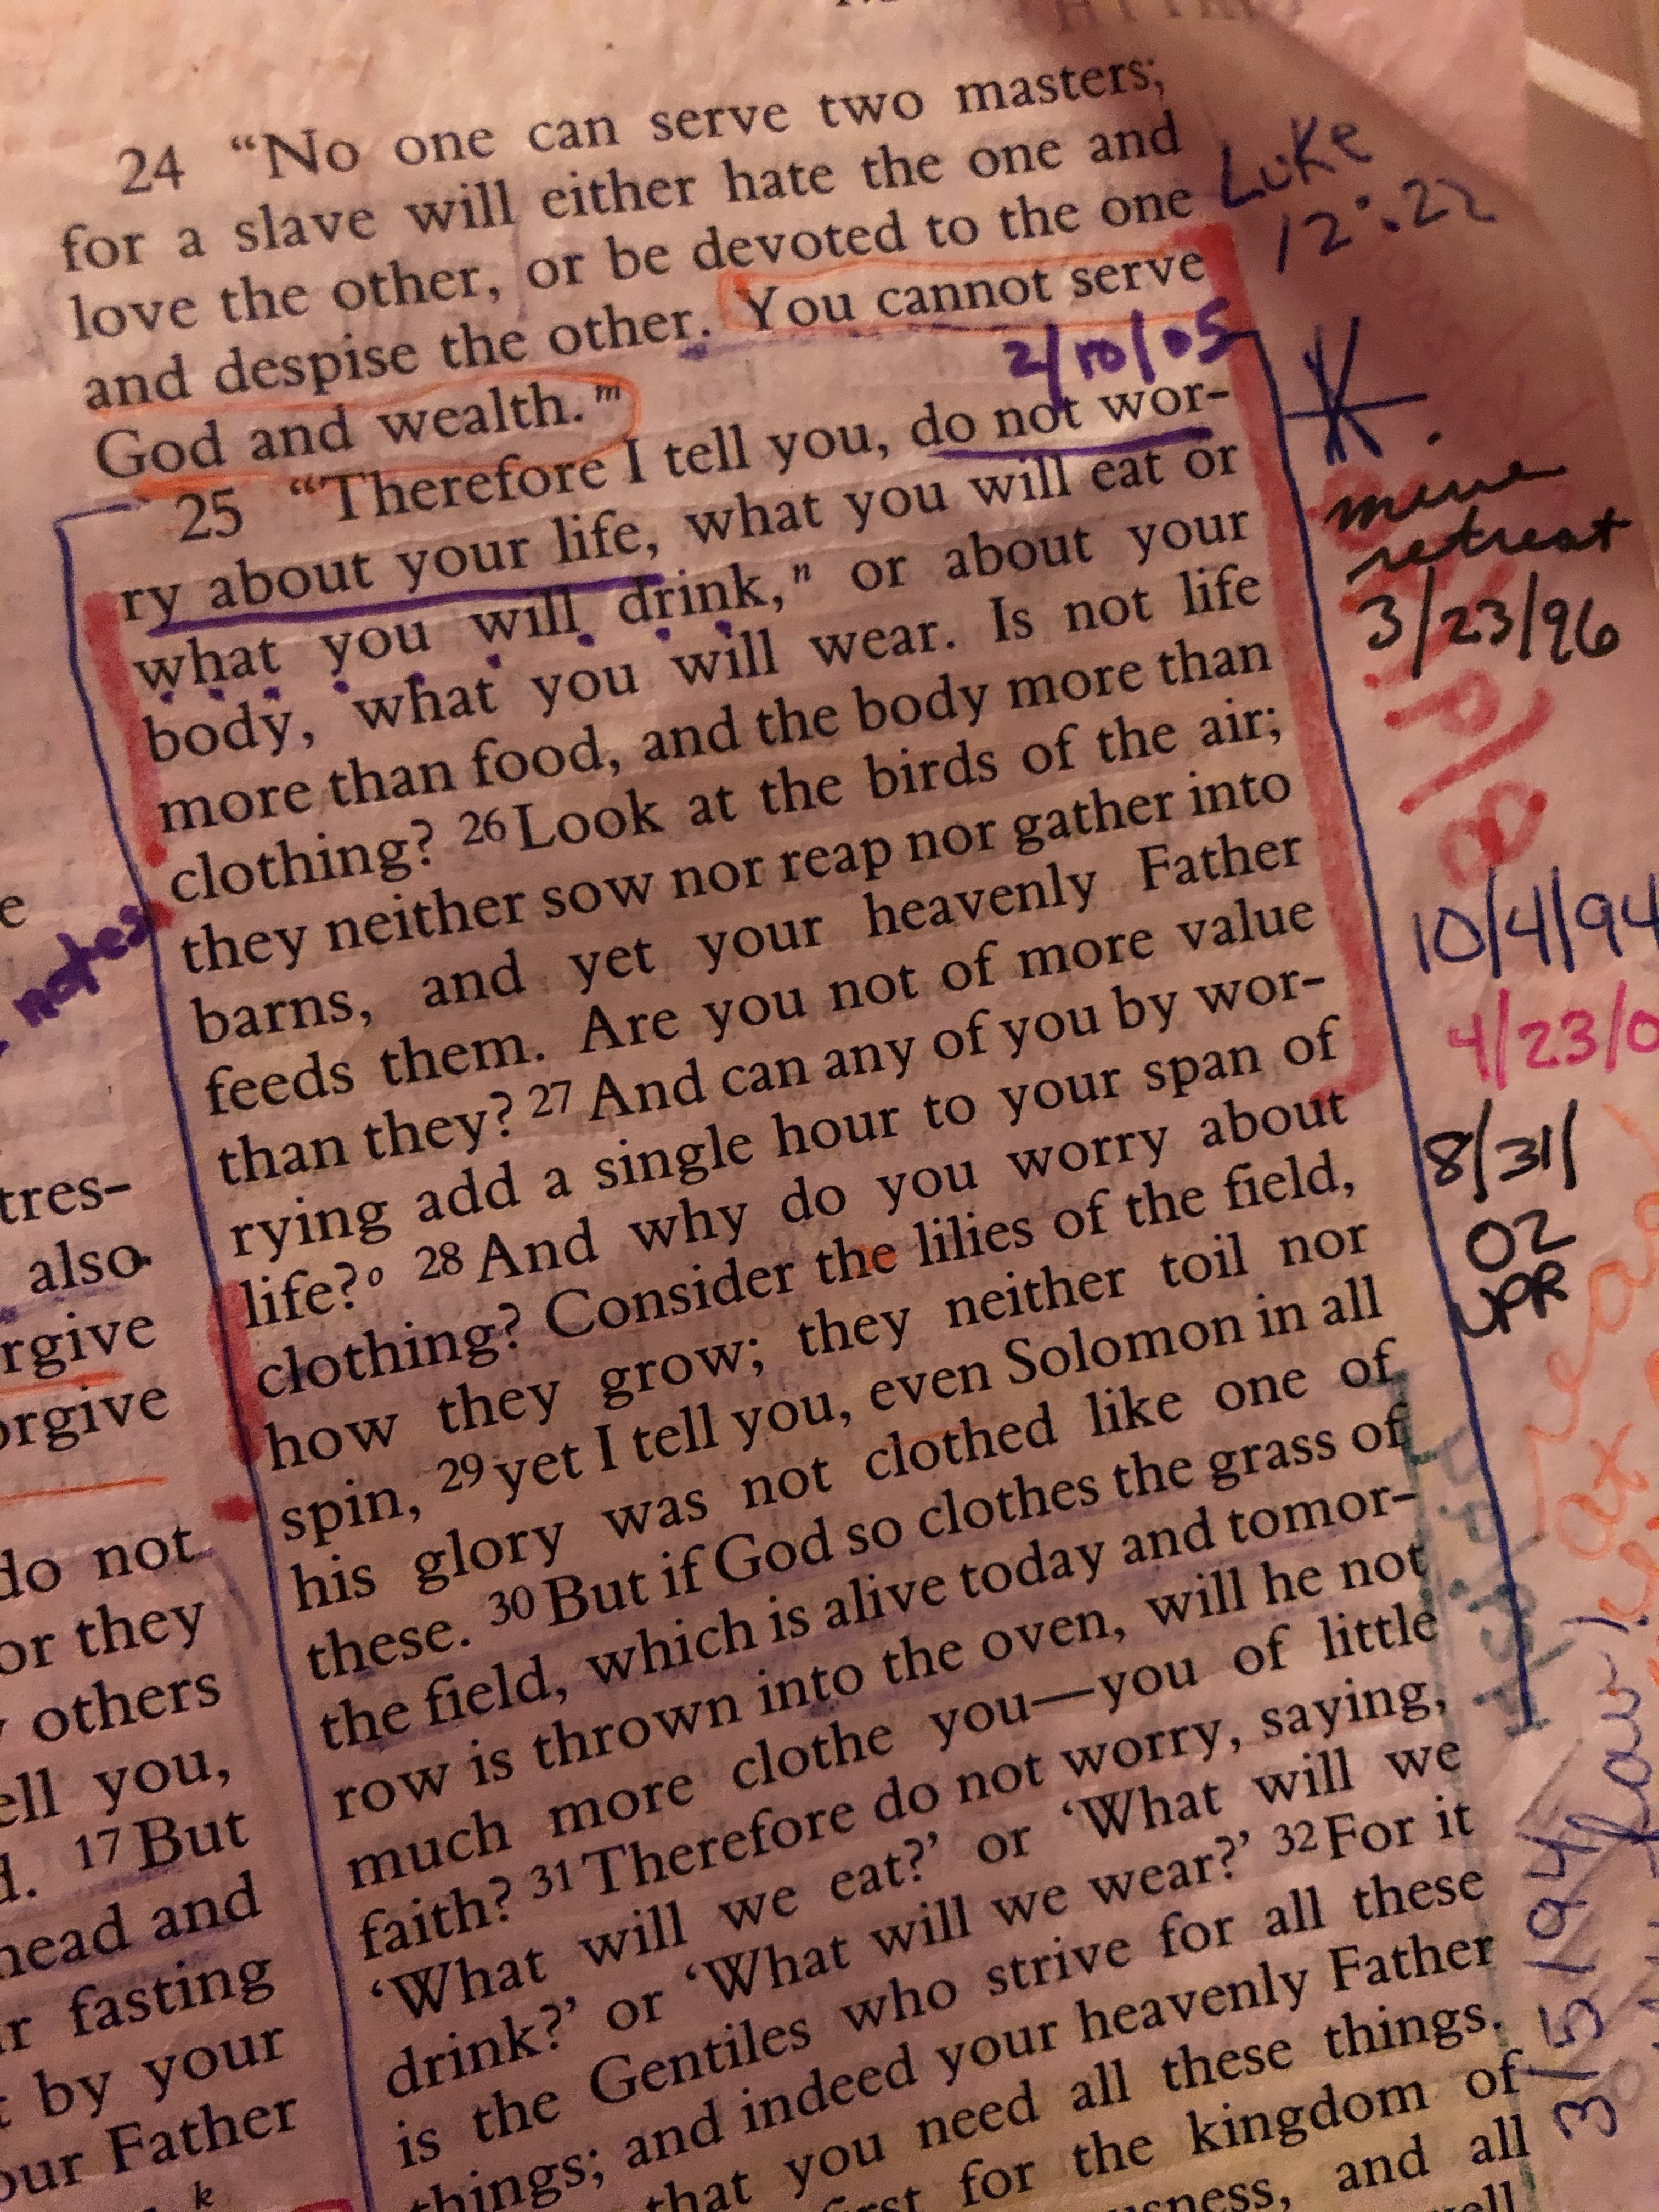 24 “No one can serve two masters;
for a slave will either hate the one and
love the other, or be devoted to the one
and despise the other. You cannot serve
God and wealth.”m
25 “Therefore I tell you, do not wor-
ry about your life, what you will eat or
what you will drink,n or about your
body, what you will wear. Is not life
more than food, and the body more than
clothing? 26 Look at the birds of the air;
they neither sow nor reap nor gather into
barns, and yet your heavenly Father
feeds them. Are you not of more value
than they? 27 And can any of you by wor-
rying add a single hour to your span of
life?o 28 And why do you worry about
clothing? Consider the lilies of the field,
how they grow; they neither toil nor
spin, 29 yet I tell you, even Solomon in all
his glory was not clothed like one of
these. 30 But if God so clothes the grass of
the field, which is alive today and tomor-
row is thrown into the oven, will he not
much more clothe you—you of little
faith? 31 Therefore do not worry, saying,
‘What will we eat?’ or ‘What will we
drink?’ or ‘What will we wear?’ 32 For it
is the Gentiles who strive for all these
things; and indeed your heavenly Father
that you need all these things.
for the kingdom of
and all
Luke
12:22
2/10/05
retreat
3/23/96
10/4/94
4/23/0
8/31/
02
UPR
3/5/94
notes
e
tres-
also
rgive
orgive
do not
or they
others
ell you,
17 But
head and
r fasting
by your
our Father
k